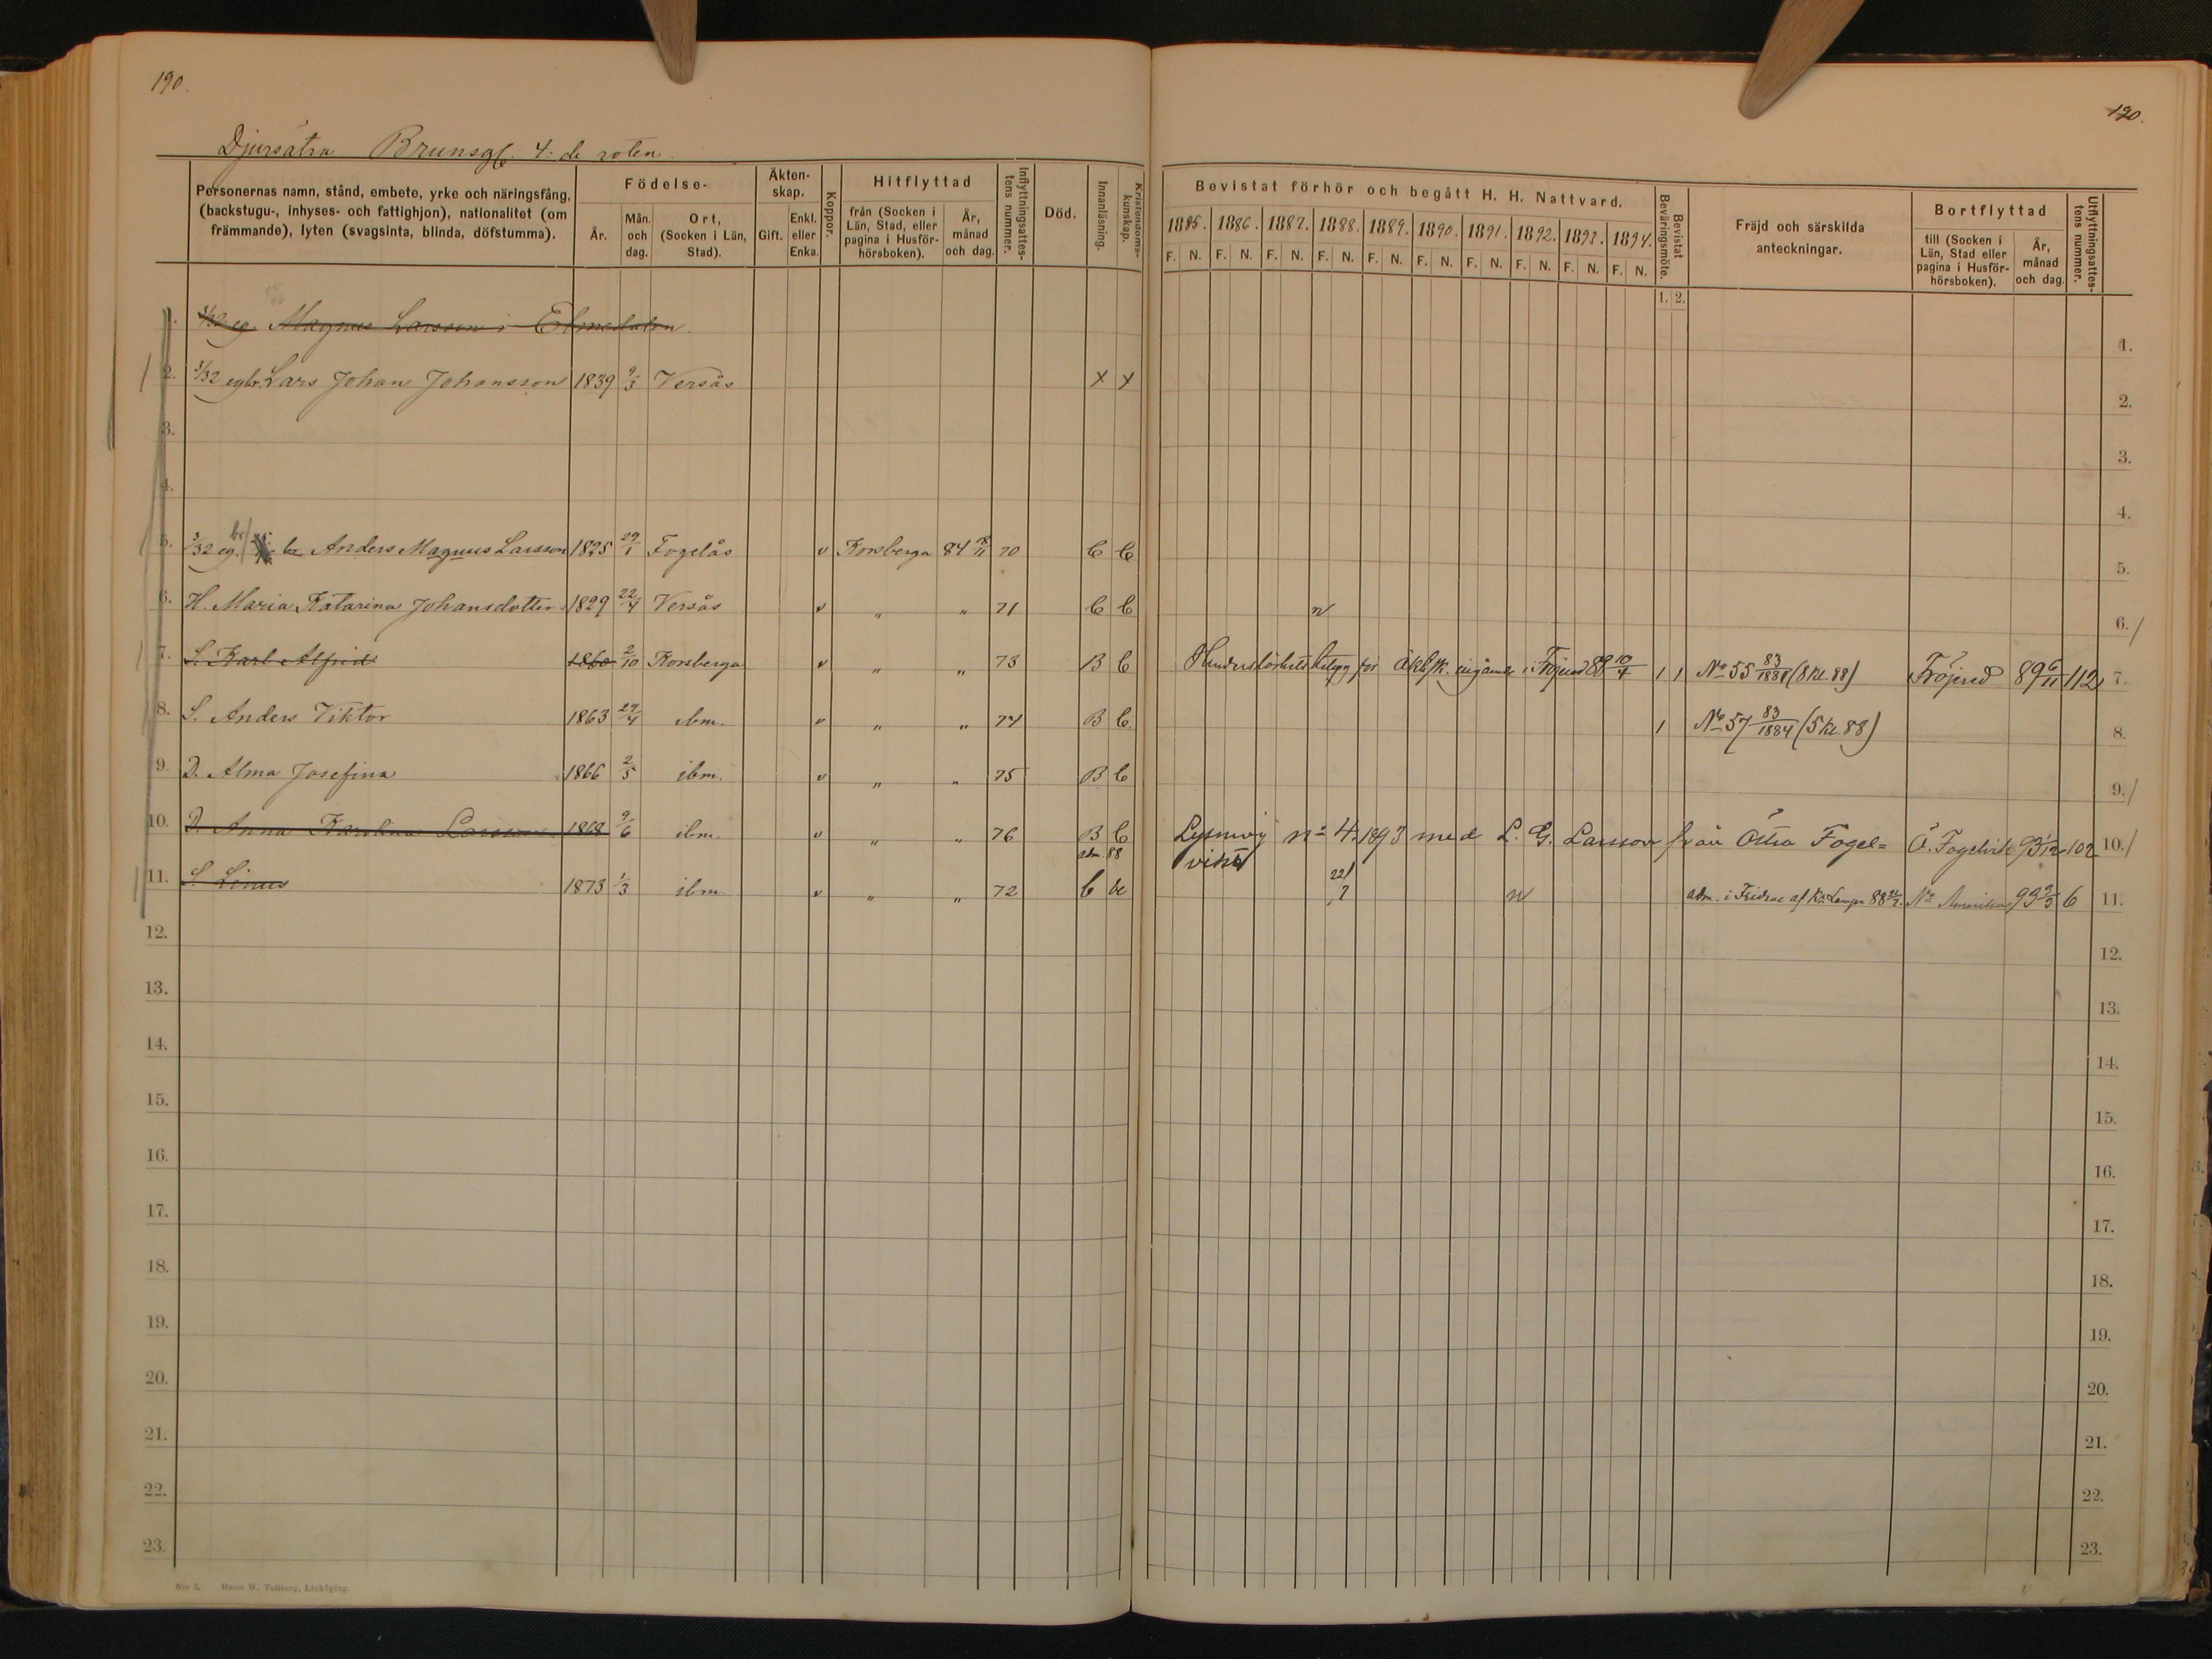 190.
190.
Djursätra Brunsgf. 4:de roten
Personernas namn, stånd, embete, yrke och näringsfång, (backstugu-, inhyses- och fattighjon), nationalitet (om främmande), lyten (svagsinta, blinda, döfstumma).
Födelse-
År.
Mån. och dag.
Ort, (Socken i Län, Stad).
Äkten-skap.
Gift.
Enkl. eller Enka.
Koppor.
Hitflyttad
från (Socken i Län, Stad, eller pagina i Husför-hörsboken).
År, månad och dag.
Inflyttningsattes-tens nummer.
Död.
Innanläsning.
Kristendoms-kunskap.
Bevistat förhör och begått H. H. Nattvard.
1885. 1886. 1887. 1888. 1889. 1890. 1891. 1892. 1893. 1894.
F. N. F. N. F. N. F. N. F. N. F. N. F. N. F. N. F. N. F. N.
Bevistat Beväringsmöte.
1. 2.
Fräjd och särskilda anteckningar.
Bortflyttad
till (Socken i Län, Stad eller pagina i Husför-hörsboken).
År, månad och dag.
Utflyttningsattes-tens nummer.
1. 3/32 eg. Magnus Larsson i Elmedalen. 1.
2. 3/32 egbr. Lars Johan Johansson 1839 9/3 Versås x x 2.
3. 3.
4. 4.
5. 3/32 eg. br Anders Magnus Larsson 1825 29/1 Fogelås v Korsberga 84 70 C C 5.
6. H. Maria Katarina Johansdotter 1829 22/4 Versås v " " 71 C C n 6.
7. S. Karl Alfrid 1860 2/10 Korsberga v " " 73 B C Hinderslöshets betyg för äktsk. ingående i Fröjered 89 10/4 1 1 No 55 83/1881 (8 kl. 88) Fröjered 89 6/11 112 7.
8. S. Anders Viktor 1863 29/4 ibm. v " " 74 B C 1 No 57 83/1884 (5 kl. 88) 8.
9. D. Alma Josefina 1866 2/5 ibm. v " " 75 B C 9.
10. D. Anna Karolina Larsson 1868 9/6 ibm. v " " 76 B C Lysning no 4. 1893 med L. G. Larsson från Östra Fogel= Ö. Fogelvik 93 1/12 102 10.
vik
adm. 88
11. S. Linus 1873 1/3 ibm v " " 72 C bc 22/7 n adm. i Fridene af 88 Na Amerika 93 3/3 6 11.
12. 12.
13. 13.
14. 14.
15. 15.
16. 16.
17. 17.
18. 18.
19. 19.
20. 20.
21. 21.
22. 22.
23. 23.
N:o 3. Hasse W. Tullberg, Linköping.